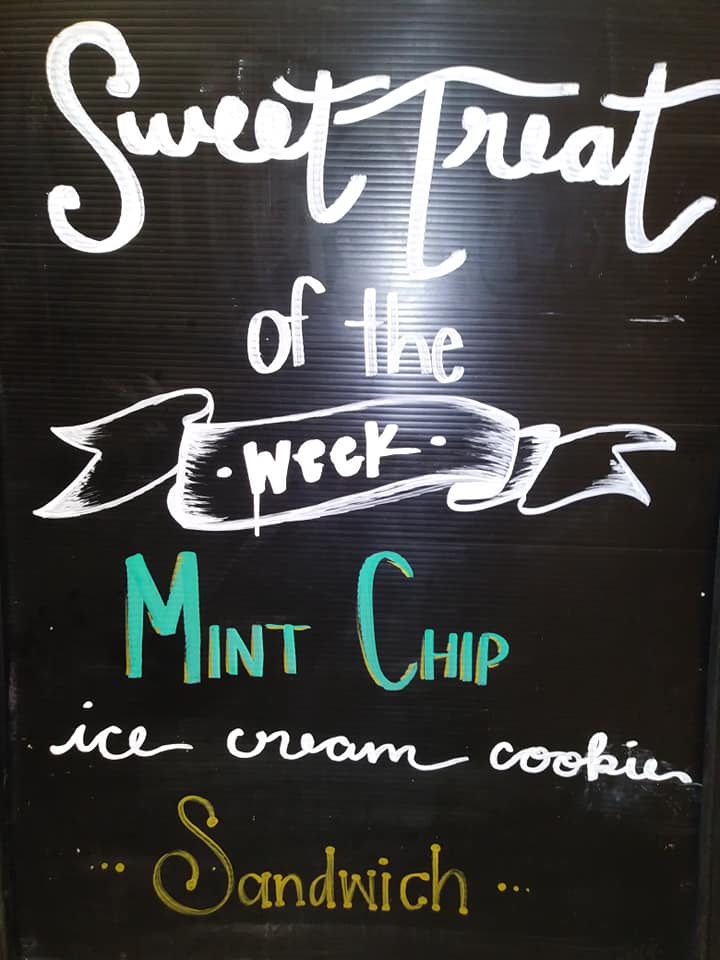 Sweet Treat
of the
· Week ·
MINT CHIP
ice cream cookie
... Sandwich ...